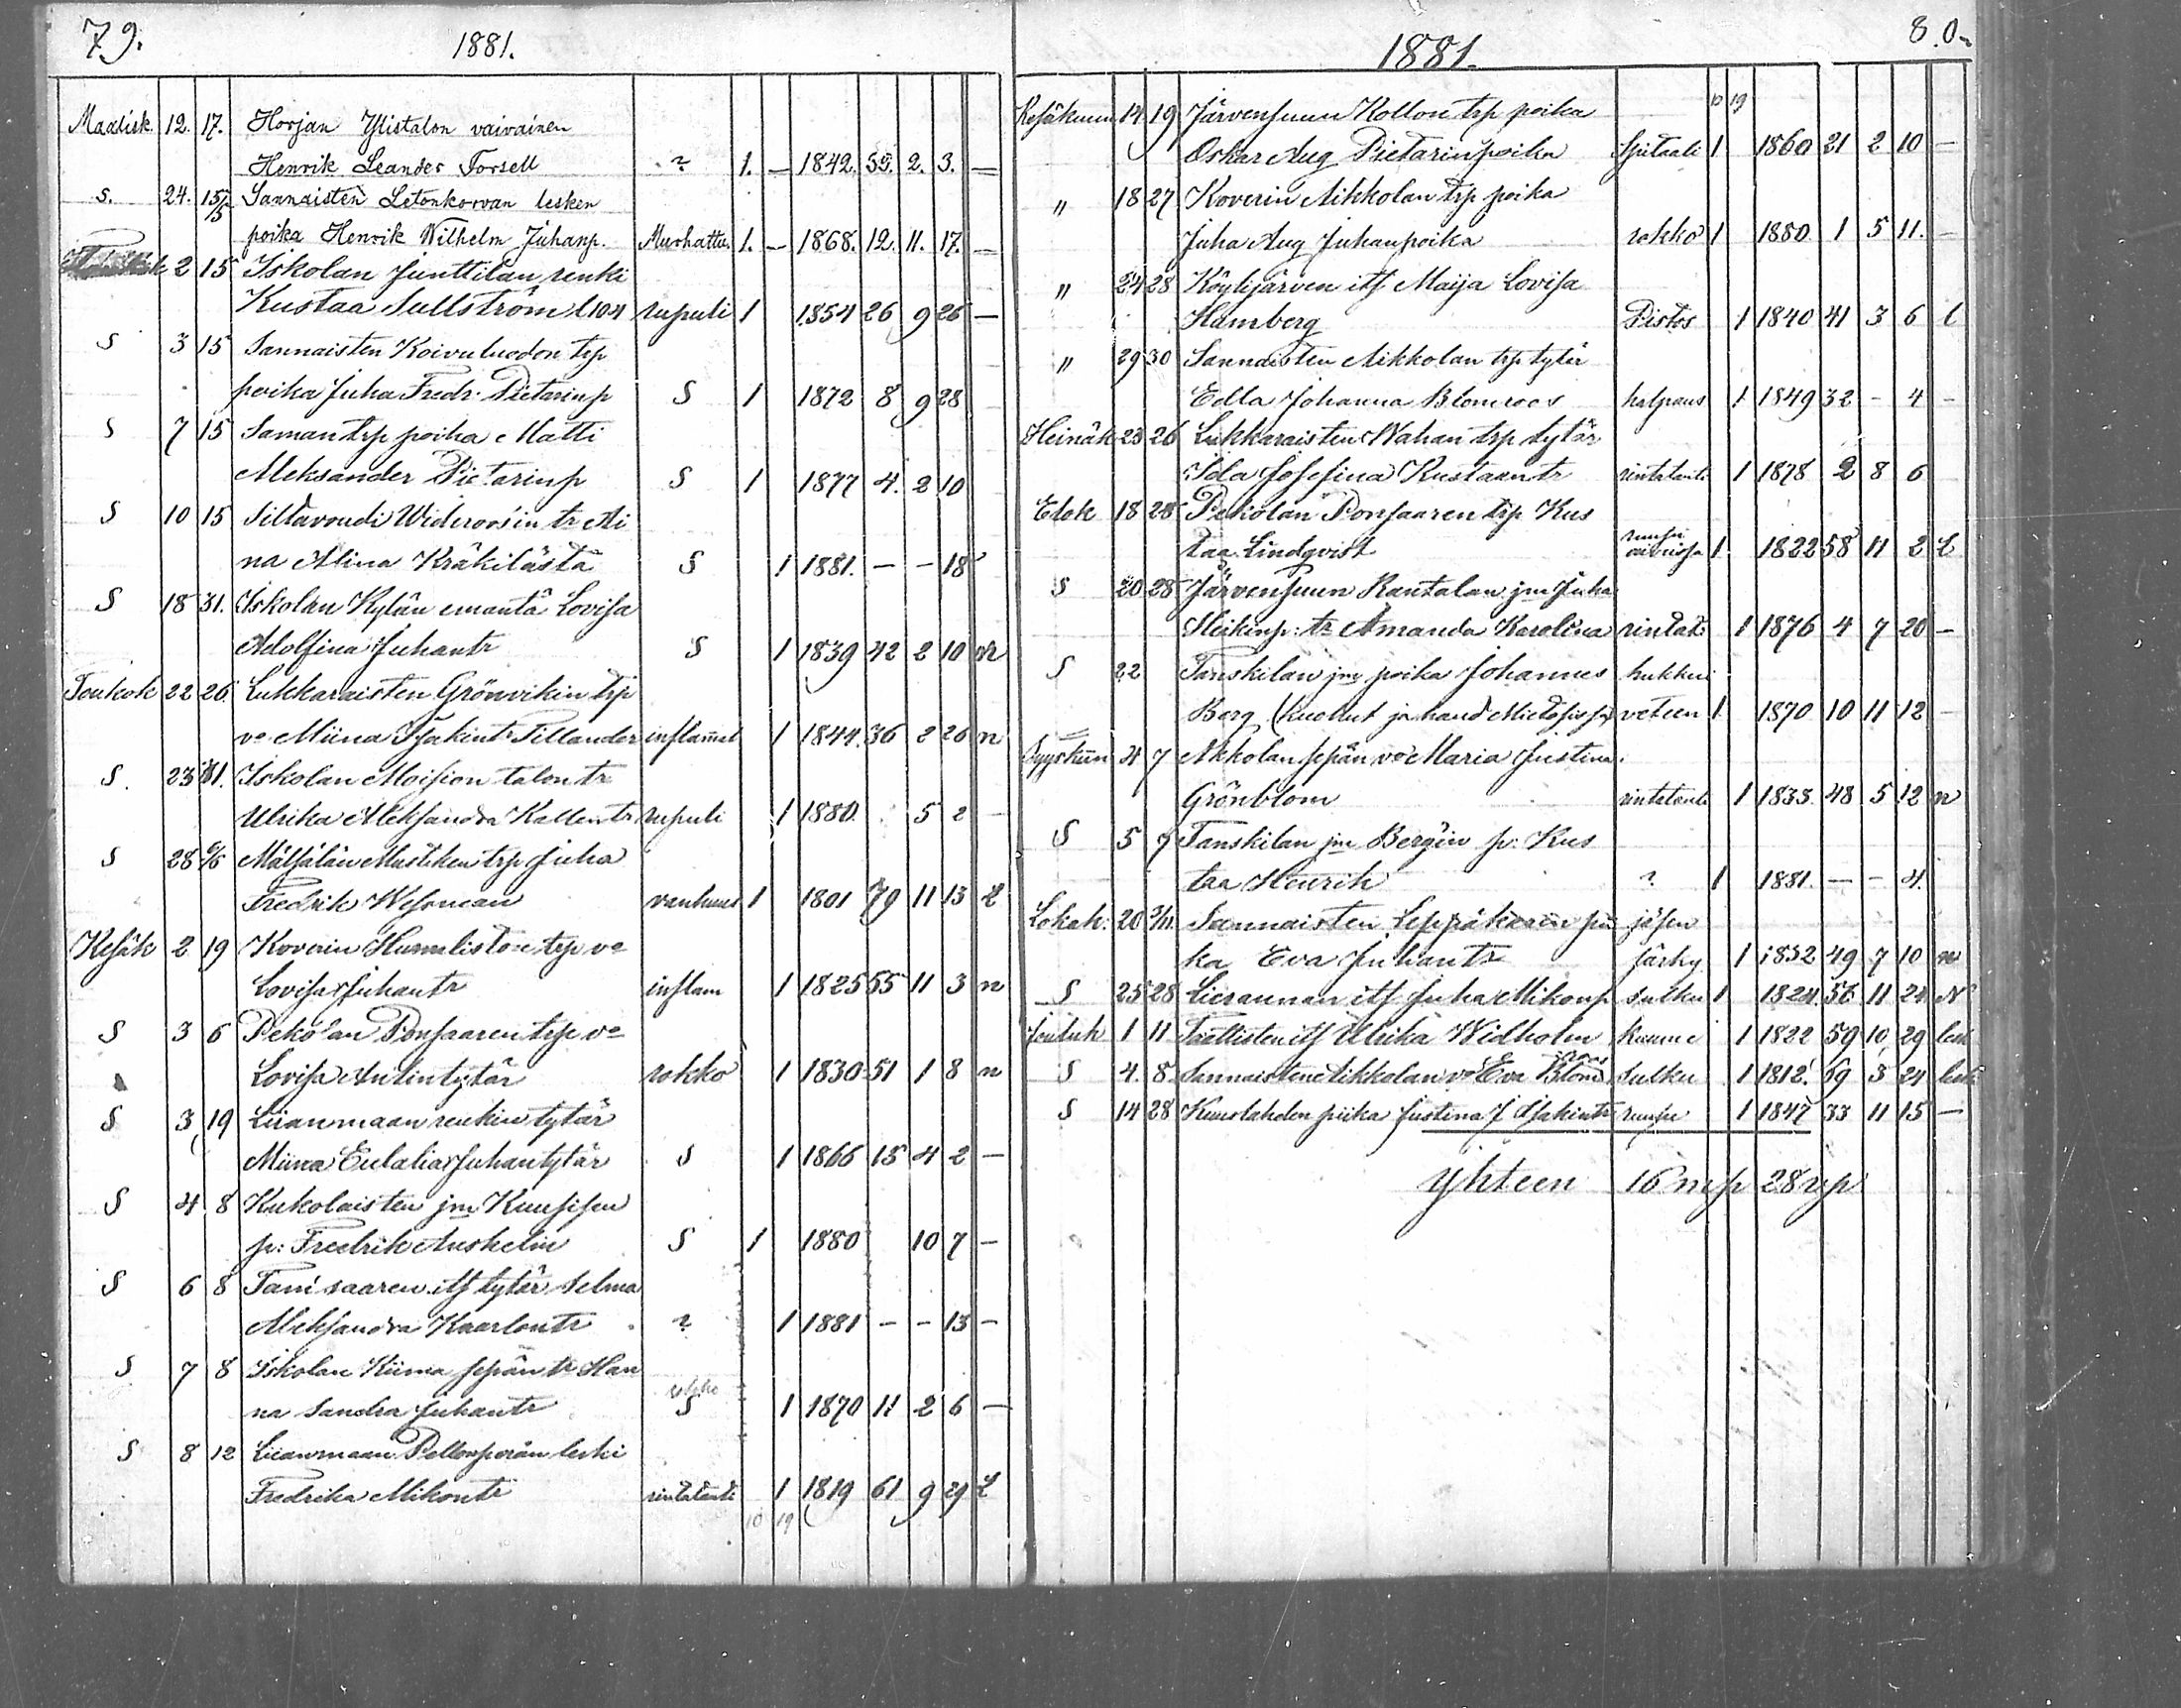 79.
1881.
Maalisk. 12. 17. Horjan Ylistalon vaivainen
Henrik Leander Forsell ? 1. — 1842. 39. 2. 3. —
s. 24. 15/5 Sannaisten Letonkorvan lesken
poika Henrik Wilhelm Juhanp. Murhattu. 1. — 1868. 12. 11. 17. —
2 15 Iskolan Junttilan renki
Kustaa Sullström rupuli 1 1854 26 9 26 —
S 3 15 Sannaisten Koivuluodon trp
poika Juha Fredr. Pietarinp S 1 1872 8 9 28
S 7 15 Saman trp poika Matti
Aleksander Pietarinp S 1 1877 4. 2 10
S 10 15 Siltavoudi Wideroosin tr Ai
na Alina Kräkilästä S 1 1881. — — 18
S 18 31. Iskolan Kylän emäntä Lovisa
Adolfina Juhantr S 1 1839 42 2 10 n
Toukok 22 26. Lukkaraisten Grönvikin trp
vo Miina Isakintr Tillander inflamat 1 1844. 36 2 26 n
S. 23 31. Iskolan Moision talon tr
Ulrika Aleksandra Kallentr rupuli 1 1880. 5 2 —
S 28 6/6 Mälsälän Mustiken trp Juha
Fredrik Wesman vanhuus 1 1801 79 11 13 L
Kesäk 2 19 Koverin Humaliston trp vo
Lovisa Juhantr inflam 1 1825 55 11 3 n
S 3 6 Pekolan Ponsaaren trp vo
Lovisa Antintytär rokko 1 1830 51 1 8 n
S 3 19 Liianmaan renkin tytär
Miina Eulalia Juhantytär S 1 1866 15 4 2 —
S 4 8 Kukolaisten jm Kuusisen
p: Fredrik Anshelm S 1 1880 10 7 —
S 6 8 Tanisaaren its tytär Selma
Aleksandra Kaarlontr ? 1 1881 — — 13 —
S 7 8 Iskolan Kiima sepän tr Han
na Sandra Juhantr S 1 1870 11 2 6 —
S 8 12 Liianmaan Pellonperän leski
Fredrika Mikontr rintatauti 1 1819 61 9 29 L
10 19
8.0.
1881.
10 19
Kesäkuun 14 19 Järvensuun Kollon trp poika
Oskar Aug Pietarinpoika Spitaali 1 1860 21 2 10 —
" 18 27 Koverin Mikkolan trp poika
Juha Aug Juhanpoika rokko 1 1880 1 5 11. —
" 24 28 Köylijärven its Maija Lovisa
Hamberg Pistos 1 1840 41 3 6 l
" 29 30 Sannaisten Mikkolan trp tytär
Edla Johanna Blomroos halpaus 1 1849 32 — 4 —
Heinäk 23 26 Lukkaraisten Wahan trp tytär
Ida Josefina Kustaantr rintatauti 1 1878 2 8 6
Elok 18 28 Pekolan Ponsaaren trp Kus
taa Lindqvist 1 1822 58 11 2 L
S 20 28 Järvensuun Rantalan jm Juha
Heikinp: tr Amanda Karolina rintat: 1 1876 4 7 20 —
S 22 Tanskilan jm poika Johannes hukkui
Berg veteen 1 1870 10 11 12 —
Syyskuun 4 7 Akkolan sepän vo Maria Justina
Grönblom rintatauti 1 1833. 48 5 12 n
S 5 9 Tanskilan jm Bergin p: Kus
taa Henrik ? 1 1881. — — 4.
Lokak. 20 3/11. Sannaisten Leppäkarin pii jäsen
ka Eva Juhantr särky 1 1832 49 7 10 n
S 25 28 its Juha Mikonp sulku 1 1824. 56 11 24 N
Jouluk 1 11 Tattisten its Ulrika Widholm kuume 1 1822 59 10 29 lesk
S 4. 8. Sannaisten Mikkolan vo Eva Blom roos sulku 1 1812. 69 3 24 leski
S 14 28 Kuuslahden piika Justina J Isakintr ruusu 1 1847 33 11 15 —
Yhteen 16 mp 28 vp